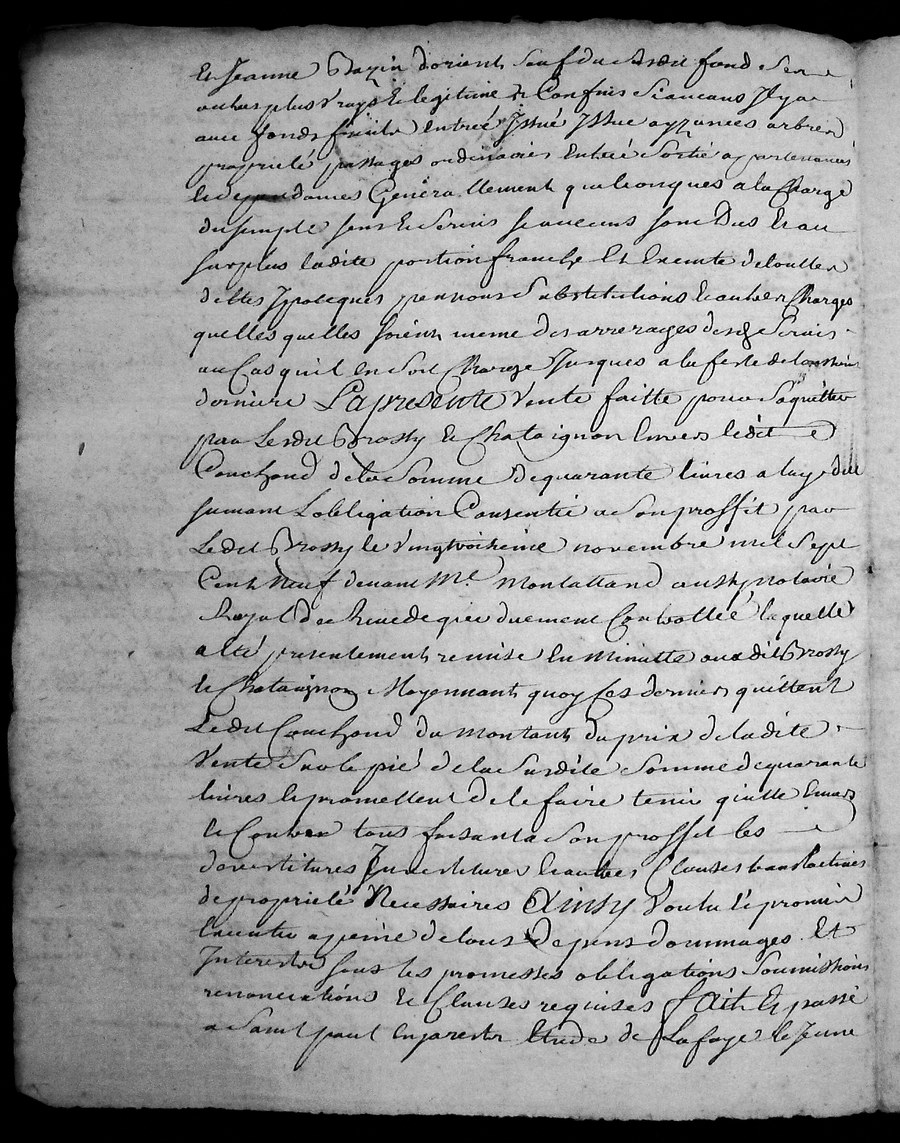 Et Jeanne Bazin d'orient sauf du susdit fond Ses
autres plus vrays Et legitime Confins Si aucuns Jlya
avec fonds fruits Entrée Jssuë Jssue ayzances arbres
proprieté passages ordinaires Entrée Sortie appartenances
Et dependances Generallement quelconques a la Charge
du Simple Sens Et Servis Si aucuns Sont Dus Et au
Surplus ladite portion franche Et Exempte de touttes
dettes Jpoteques pensions Substitutions Et autres Charges
quelles quelles Soient meme des arrerages desd Servis
au Cas quil En Soit Chargé Jusques a la feste de la st
derniere La presente Vente faitte pour S'aquitter
par Lesdit Brossy Et Chataignon Envers ledit
Couchoud de la Somme de quarante livres a luy due
Suivant Lobligation Consentie a Son proffit par
Ledit Brossy le Vingtroisieme novembre mil Sept
Cent Neuf devant Me Montalland aussy notaire
Royal de Rivedegier duement Controllée laquelle
a été presentement remise En Minutte aux dit Brossy
Et Chataignon Moyennant quoy Ces derniers quittent
Ledit Couchoud du montant du prix de ladite
Vente Sur le pié de la Susdite Somme de quarante
livres Et promettent de le faire tenir quitte Envers
Et Contre tous faisant a Son proffit les
devestitures Jnvestitures Et autres Clauses translatives
de proprieté Necessaires Ainsy Voulu Et promis
Executer a peine de tous Depens dommages Et
Jnterests Sous les promesses obligations Soumissions
renonciations Et Clauses requises Fait Et passé
a Saint paul En jarest Etude de Lafaye le Jeune